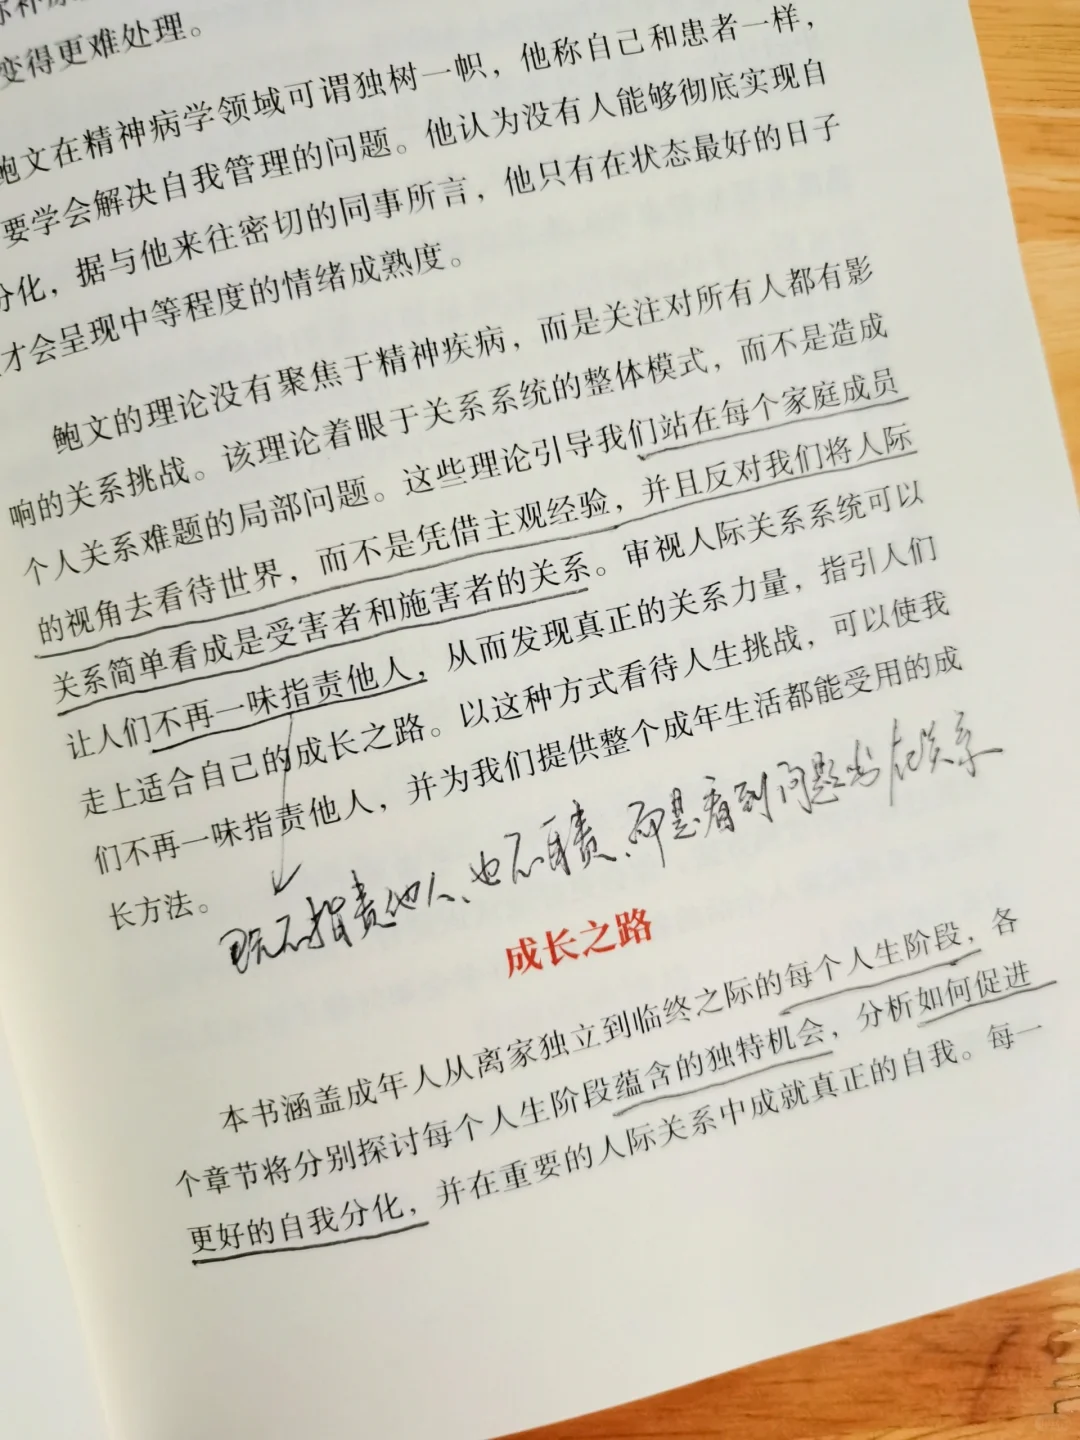 变得更难处理。
鲍文在精神病学领域可谓独树一帜，他称自己和患者一样，
要学会解决自我管理的问题。他认为没有人能够彻底实现自
分化，据与他来往密切的同事所言，他只有在状态最好的日子
才会呈现中等程度的情绪成熟度。
鲍文的理论没有聚焦于精神疾病，而是关注对所有人都有影
响的关系挑战。该理论着眼于关系系统的整体模式，而不是造成
个人关系难题的局部问题。这些理论引导我们站在每个家庭成员
的视角去看待世界，而不是凭借主观经验，并且反对我们将人际
关系简单看成是受害者和施害者的关系。审视人际关系系统可以
让人们不再一味指责他人，从而发现真正的关系力量，指引人们
走上适合自己的成长之路。以这种方式看待人生挑战，可以使我
们不再一味指责他人，并为我们提供整个成年生活都能受用的成
长方法。
既不指责他人、也不自责、而是看到问题出在关系
成长之路
本书涵盖成年人从离家独立到临终之际的每个人生阶段，各
个章节将分别探讨每个人生阶段蕴含的独特机会，分析如何促进
更好的自我分化，并在重要的人际关系中成就真正的自我。每一